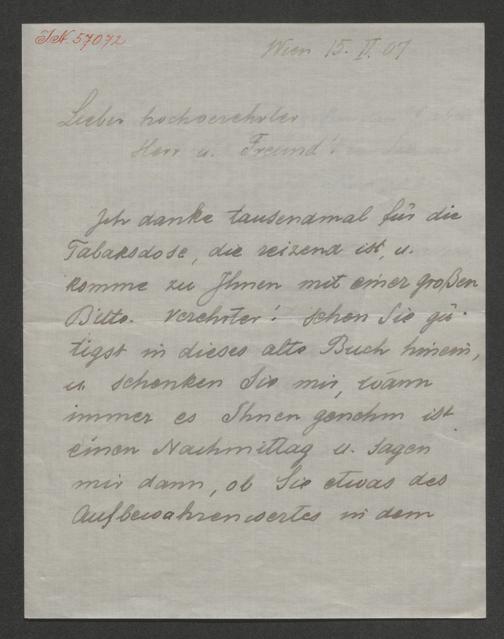 I.N. 57072
Wien 15. V. 07
Lieber hochverehrter
Herr u. Freund!
Ich danke tausendmal für die
Tabaksdose, die reizend ist, u.
komme zu Ihnen mit einer großen
Bitte. Verehrter! sehen Sie gü-
tigst in dieses alte Buch hinein,
u. schenken Sie mir, wann
immer es Ihnen genehm ist
einen Nachmittag u. sagen
mir dann, ob Sie etwas des
Aufbewahrenwertes in dem